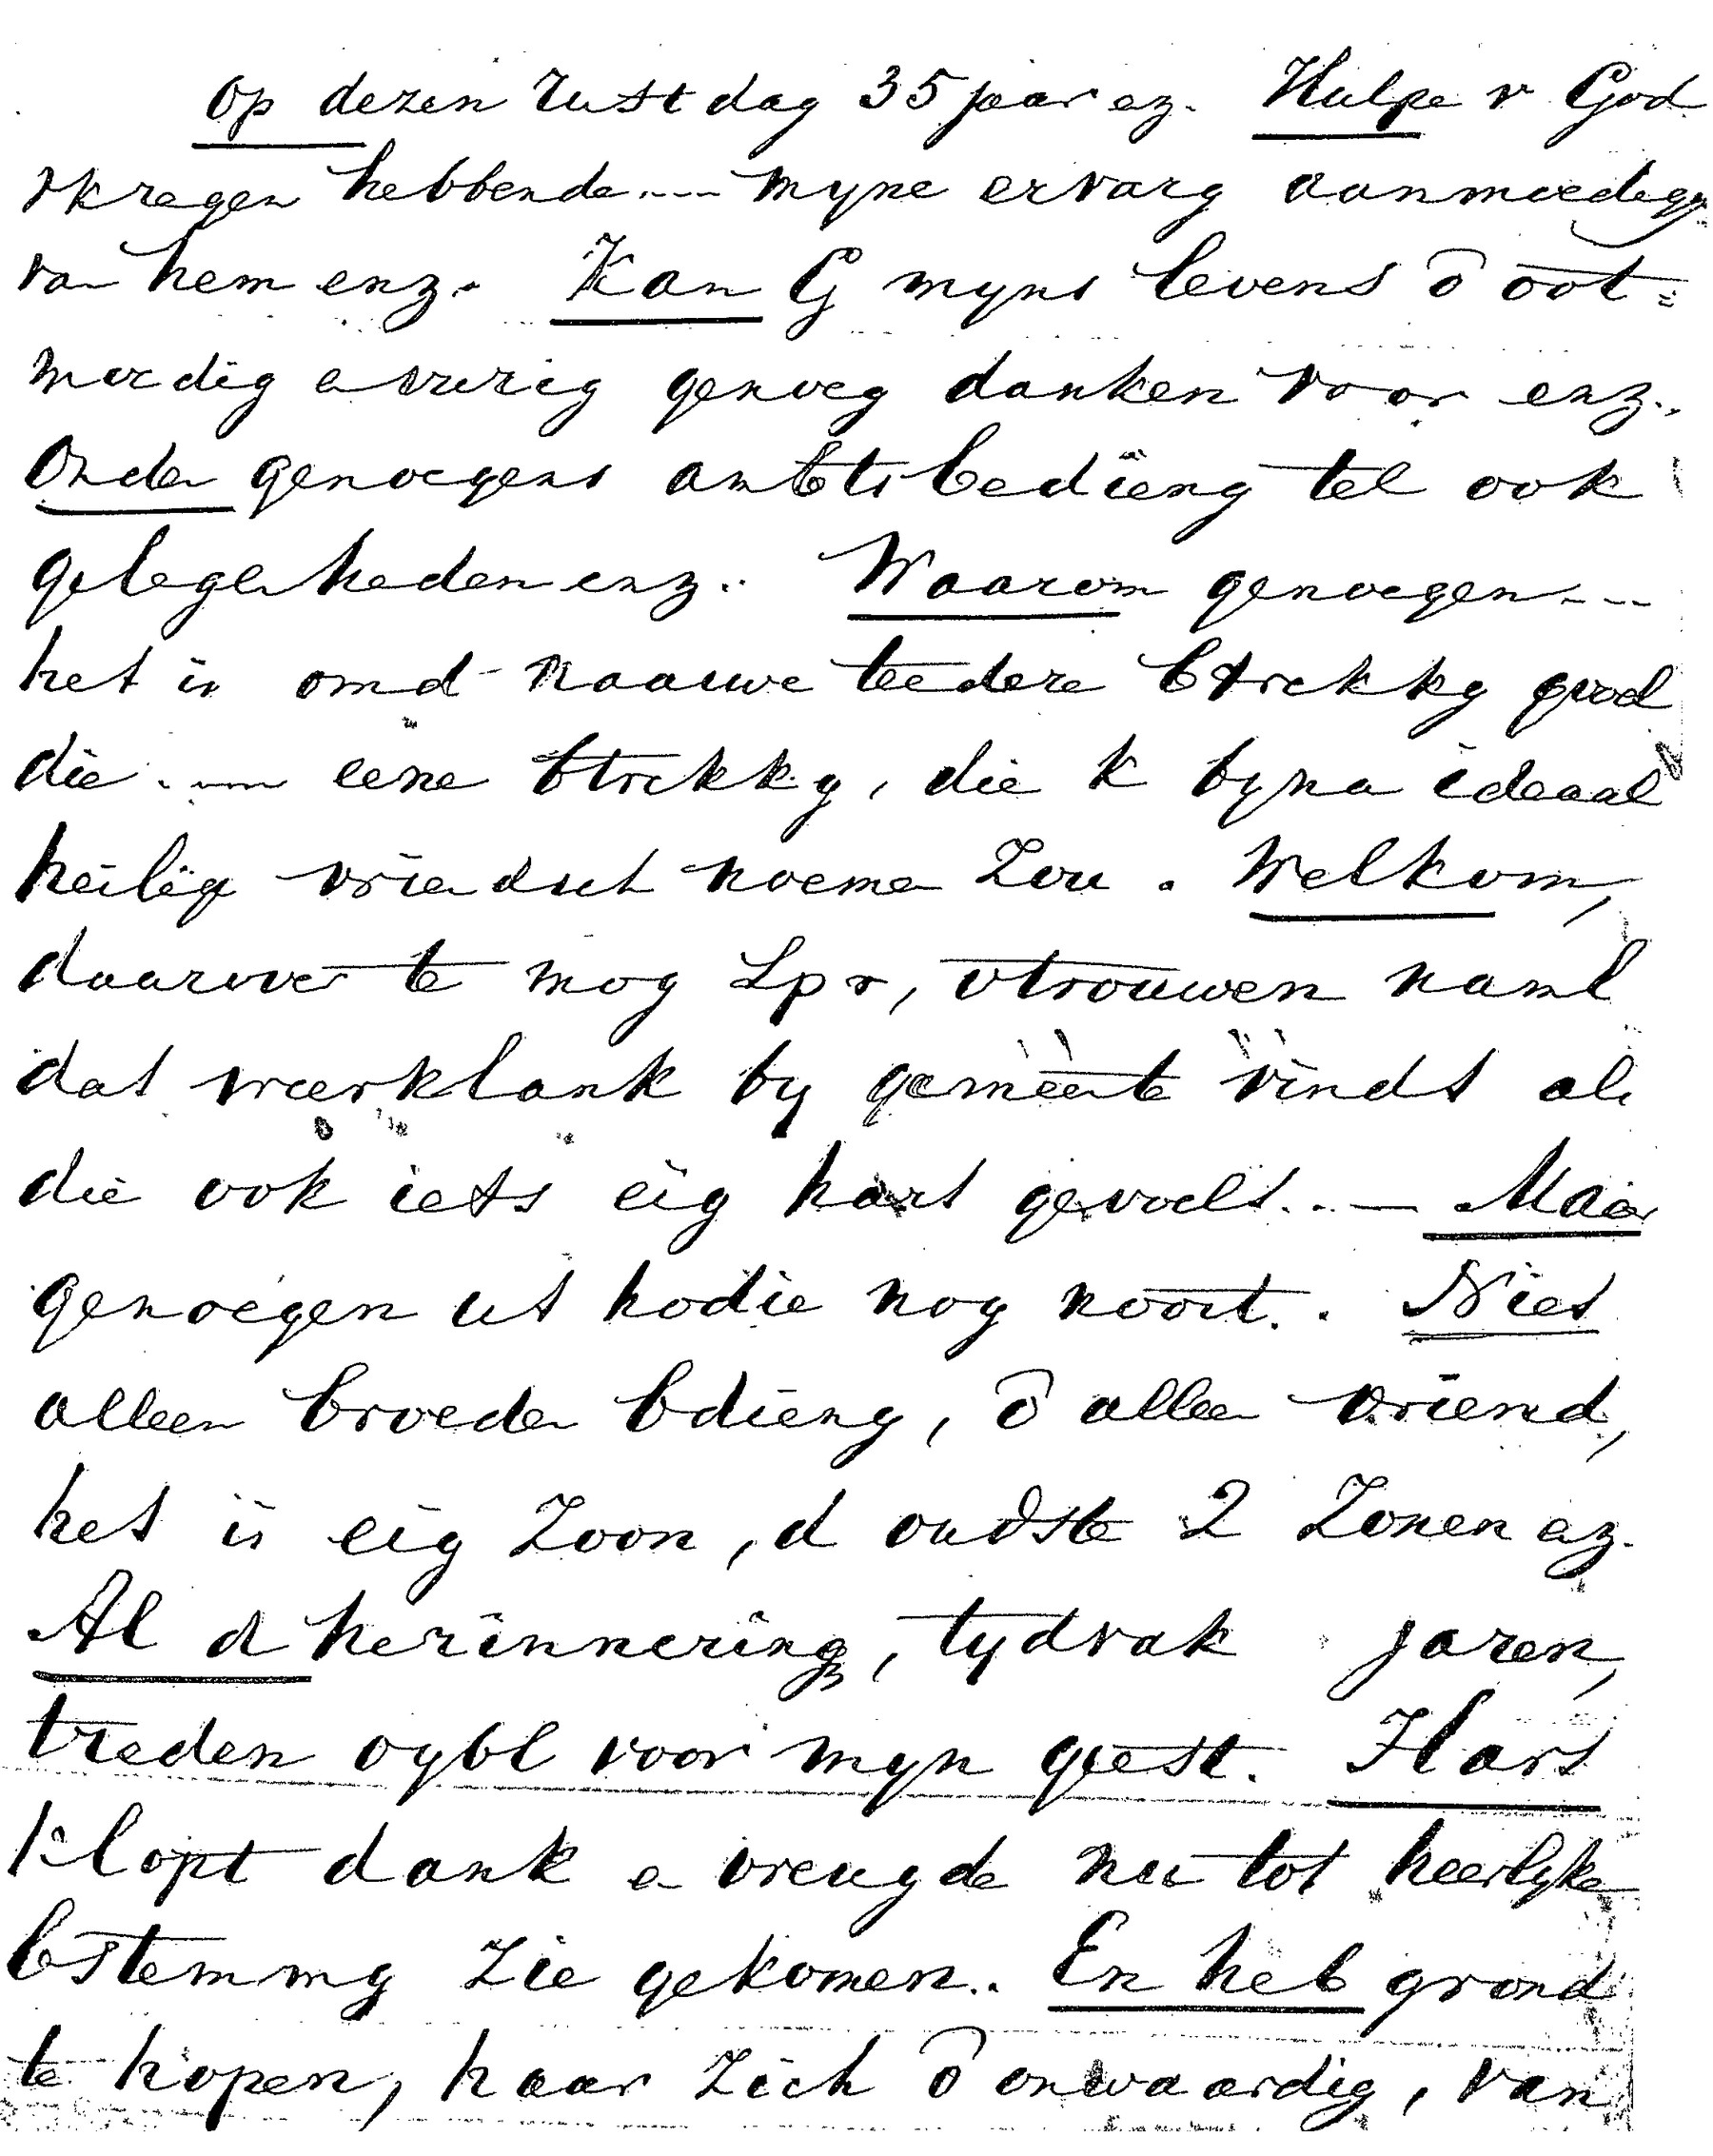 Op dezen rustdag 35 jaar ez. Hulpe v God
vkregen hebbende ---- myne ervarg aanmoedegg
van hem enz. Kan G myns levens ô oot=
moedig e vurig genoeg danken voor enz..
Onder genoegens ambtsbediëng tel ook
gelegenheden enz.. Waarom genoegen ---
het is om d naauwe teedere btrekkg goed
die .-- eene btrekkg, die k byna ideaal
heilige vriendsch noemen zou. Welkom,
daarover te mog spr, vtrouwen naml
dat weerklank by gemeente vindt als
die ook iets eig hart gevoelt..— Maar
genoegen ut hodie nog nooit.. Niet
alleen broeder bdieng, ô alleen vriend,
het is eig zoon, d oudste 2 zonen ez.
Al d herinnering, tydvak jaren,
treden oybl voor myn geest. Hart
klopt dank e vreugde nu tot heerlyke
bstemmg zie gekomen.. En heb grond
te hopen, haar zich ô onwaardig, van